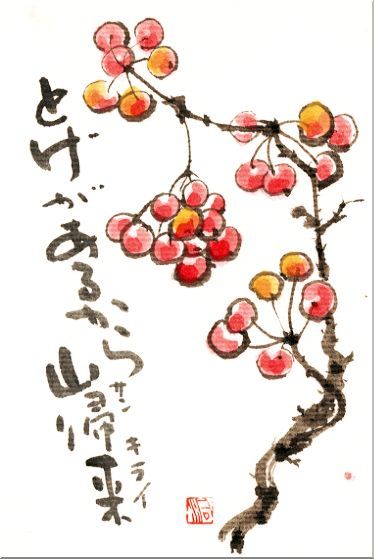 とげがあるから
山帰来
サン キライ